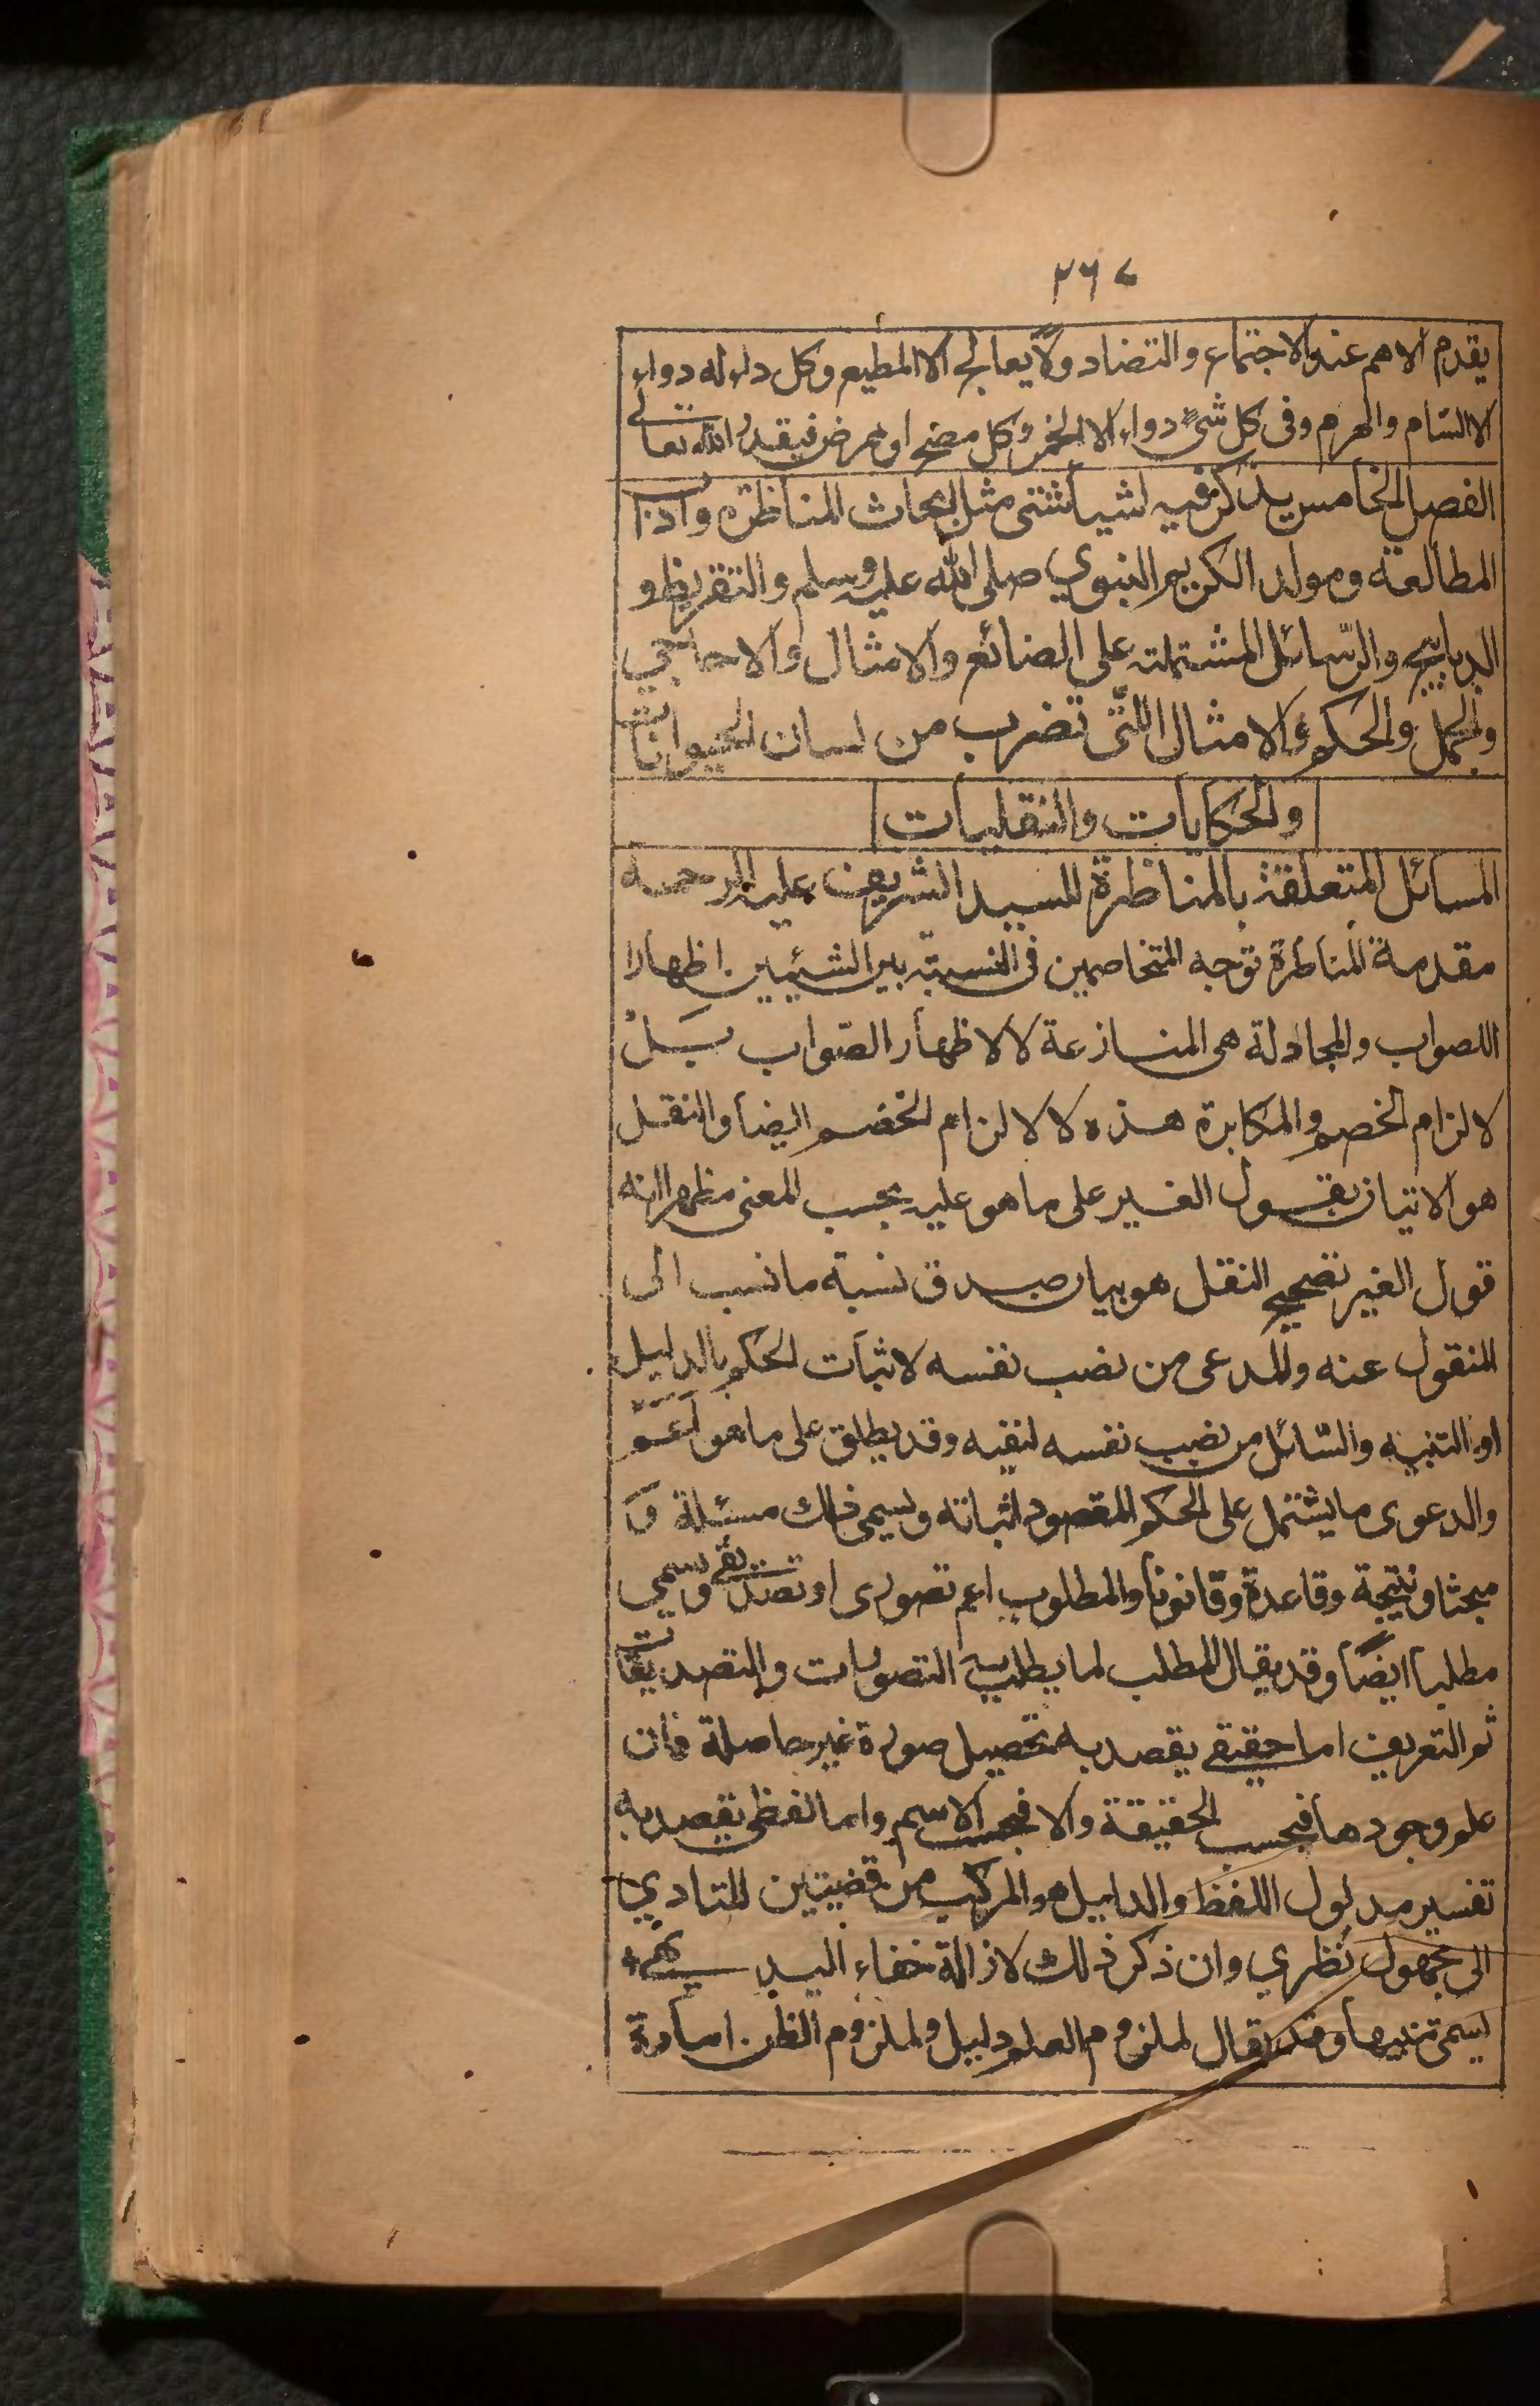 ٢٦٧
يقدم الاهم عند الاجتماع والتضاد ولا يعالج الا المطيع وكل داء له دواء
الا السّام والهرم وفى كل شئ دواء الا الخمر وكل مضج او ممرض فبقدر الله تعالى
الفصل الخامس يذكر فيه اشيا شتى مثل ابحاث المناظرة واداب
المطالعة ومولد الكريم النبوي صلى الله عليه وسلم والتقريظ و
الديباچه والرّسائل المشتملة على الصنائع والامثال والاحاجي
والجمل والحكم والامثال اللتى تضرب من لسان الحيوانات
والحكايات والنقليات
المسائل المتعلقة بالمناظرة للسيد الشريف عليه الرحمه
مقدمة المناظرة توجه المتخاصمين فى النسبة بين الشيئين اظهارا
للصواب والمجادلة هى المنازعة لا لاظهار الصّواب بَلْ
لالزام الخصم والمكابرة هذه لا لالزام الخصم ايضا والنقل
هو الاتيان بقول الغير على ما هو عليه بحسب المعنى مظهرا انه
قول الغير تصحيح النقل هو بيان صدق نسبة ما نسب الى
المنقول عنه والمدعى من نصب نفسه لاثبات الحكم بالدليل
او التنبيه والسّائل من نصب نفسه لنفيه وقد يطلق على ما هو اَعَمّ
والدعوى ما يشتمل على الحكم المقصود اثباته ويسمى ذلك مسئلة وَ
مبحثا ونتيجة وقاعدة وقانونا والمطلوب اعم تصورى او تصديقے ويسمي
مطلبا ايضًا وقد يقال المطلب لما يطلب به التصورات والتصديقات
ثم التعريف اما حقيقے يقصد به تحصيل صورة غير حاصلة فان
علم وجودها فبحسب الحقيقة والا فبحسب الاسم واما لفظى يقصد به
تفسير مدلول اللفظ والدليل هو المركب من قضيتين للتادي
الى مجهول نظري وان ذكر ذلك لازالة خفاء البديهے
يسمى تنبيها وقد يقال لملزوم العلم دليل ولملزوم الظن امارة